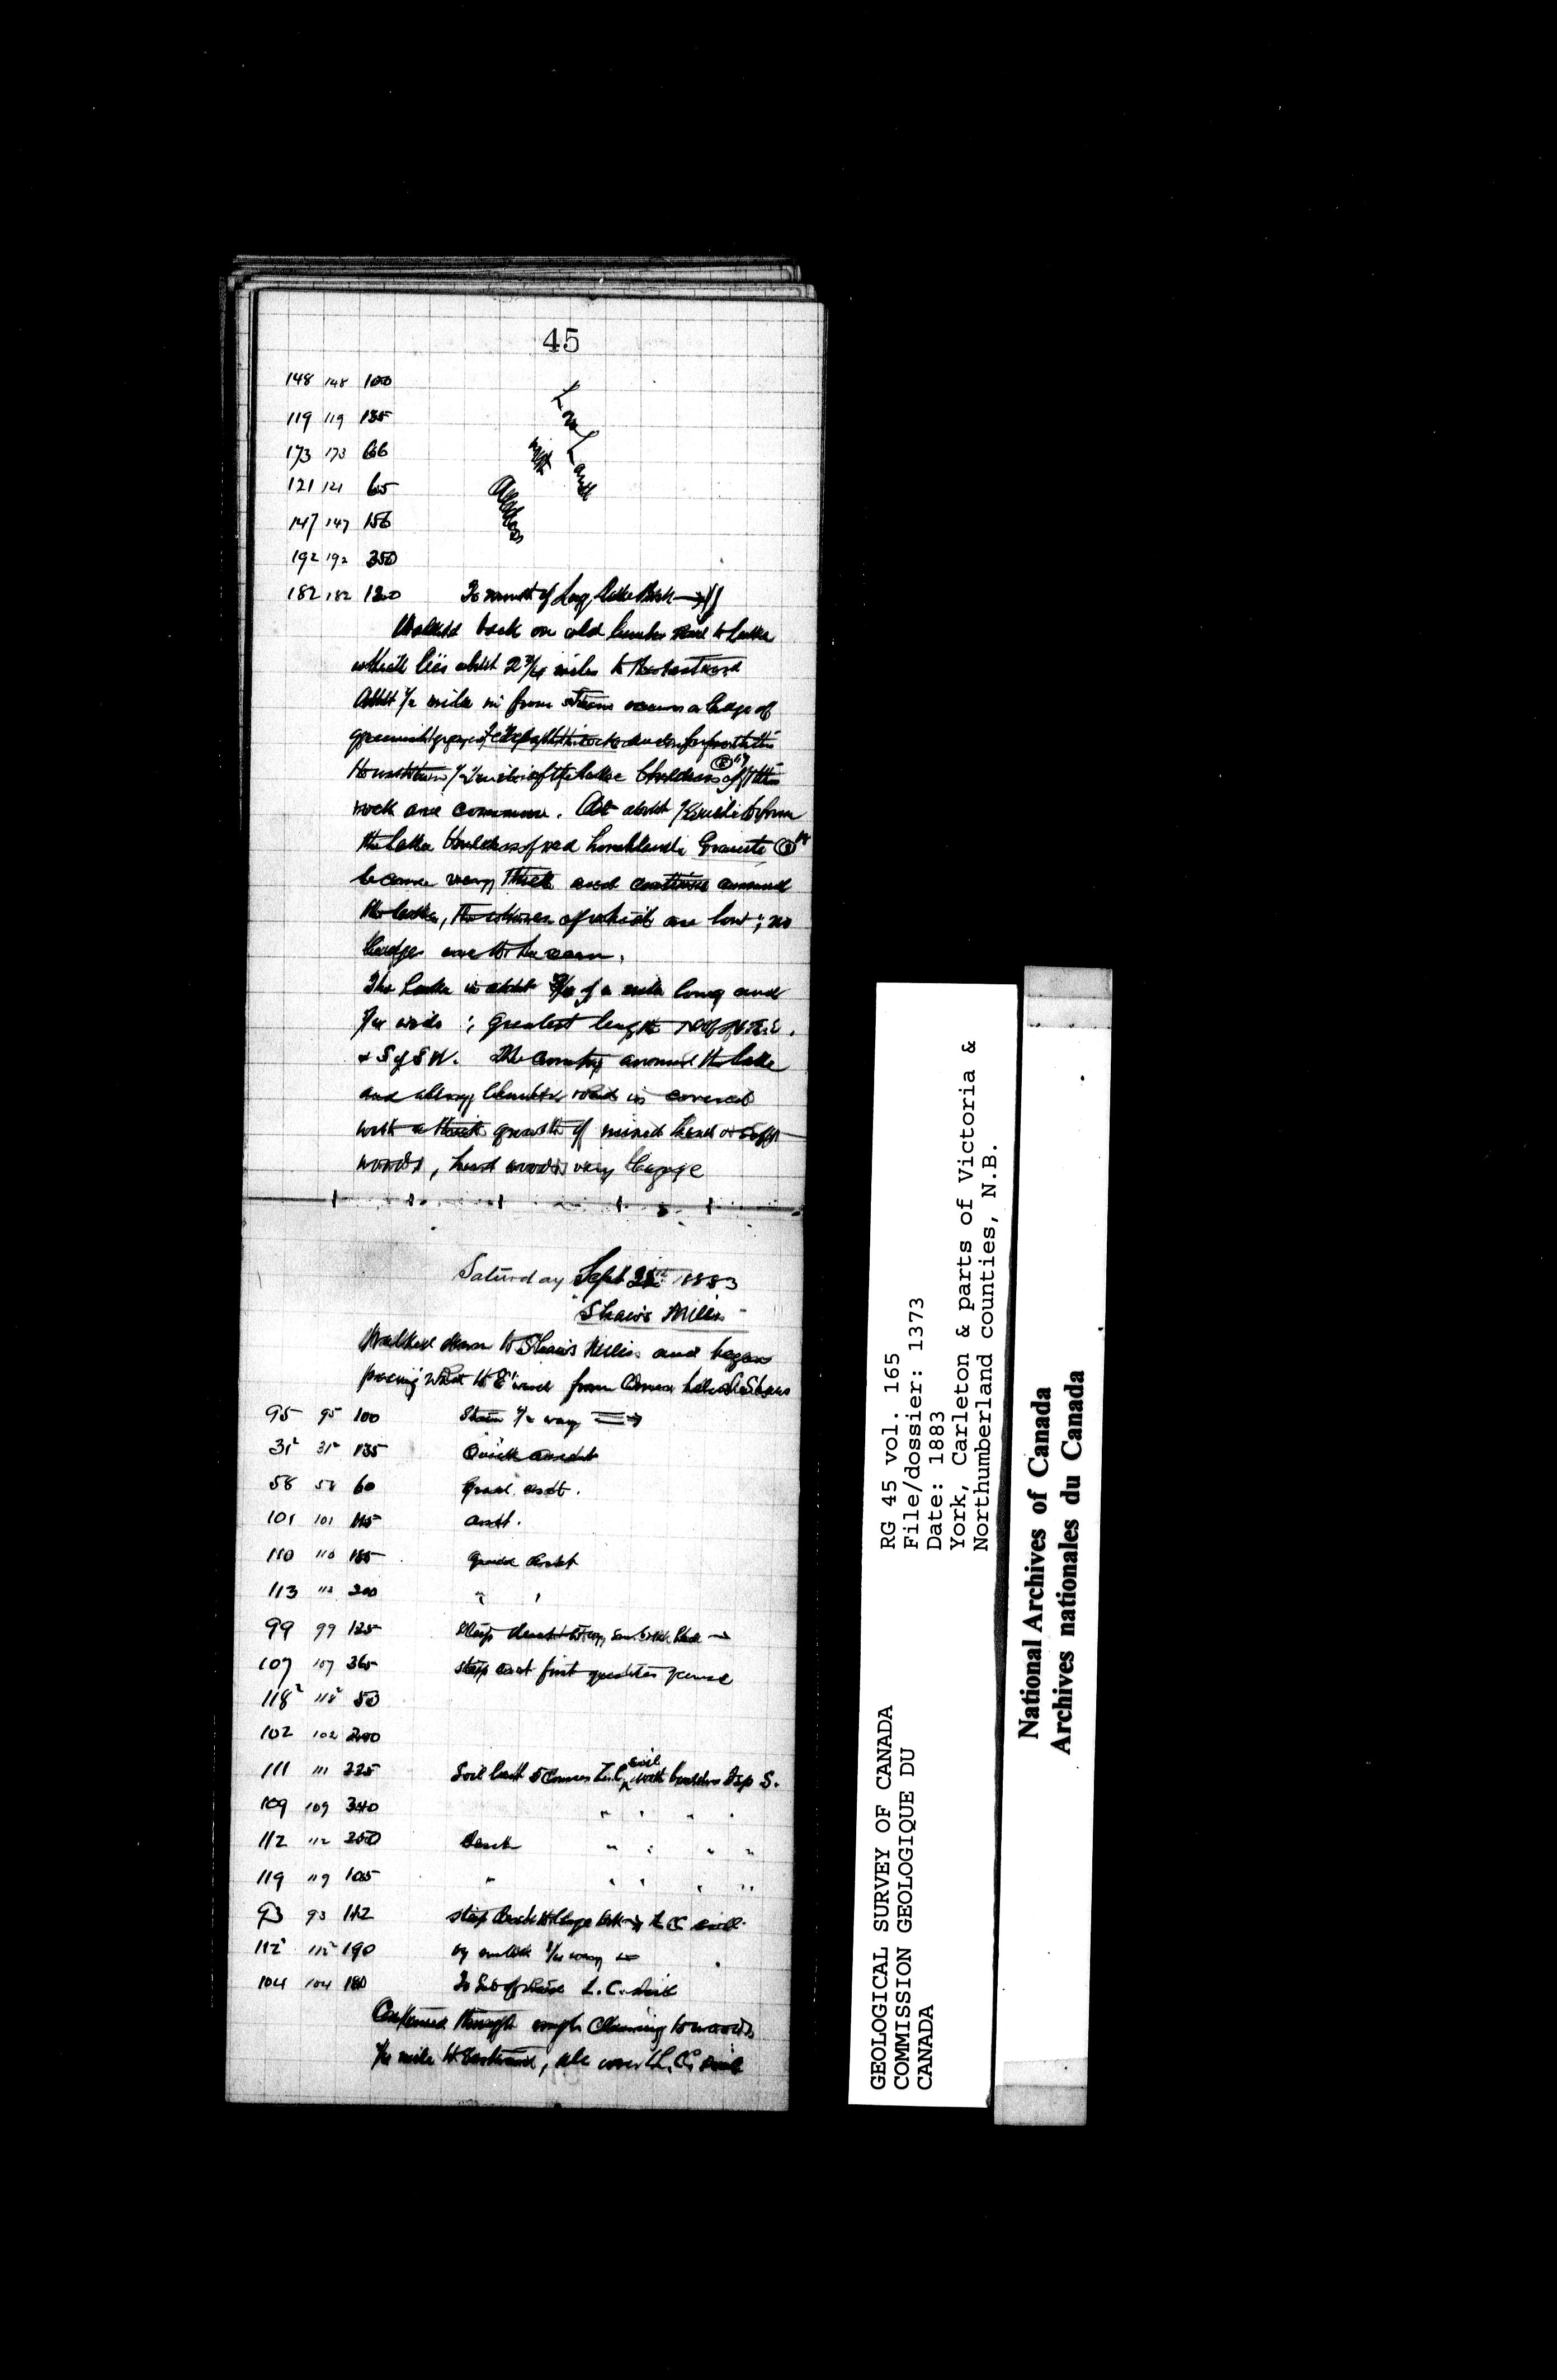 45
148 148 100
119 119 135
173 173 66
121 121 65
147 147 156
192 192 350
182 182 120 To mouth of Long Lake Bk
Low Land
with
Alders
Walked back on old lumber road to Lake
which lies about 2 3/4 miles to the eastward
About 1/2 mile in from stream occurs a ledge of
greenish gray
the Lake Boulders of this
rock are common. At about mile from
the Lake Boulders of red hornblende Granite
become very thick and continue around
the Lake, the shores of which are low; no
ledges are to be seen.
The Lake is about of a mile long and
1/4 wide; greatest length N of N.E.
& S of S W. The country around the lake
and along lumber road is covered
with a thick growth of mixed hard & soft
woods, hard woods very large
Saturday Sept 1883
Shaw's Mills
Walked down to Shaw's Mills and began
pacing road to E'ward from
95 95 100 Stream 1/2 way
31² 31² 135 Quick ascent
58 58 60 Grad. asct.
101 101 115 asct.
110 110 185 Grad asct
113 113 200 " "
99 99 125 Steep desct
107 107 365 steep asct first quarter
118² 118² 50
102 102 200
111 111 225 Soil last 5 courses L.C. soil with boulders Dip S.
109 109 340 " " " "
112 112 250 desct " " " "
119 119 105 " " " " "
93 93 112 steep desct to large bk L C soil
112² 112² 190 1/4 way
104 104 180 To End of Road L. C. Soil
Continued through rough clearing to woods
1/4 mile to Eastward, all over L. C. soil
RG 45 vol. 165
File/dossier: 1373
Date: 1883
York, Carleton & parts of Victoria &
Northumberland counties, N.B.
GEOLOGICAL SURVEY OF CANADA
COMMISSION GEOLOGIQUE DU
CANADA
National Archives of Canada
Archives nationales du Canada